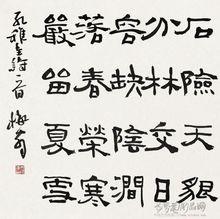 石險天貌
分林交日
容缺陰澗
落春榮寒
嚴留夏雪
孔稚圭詩一首